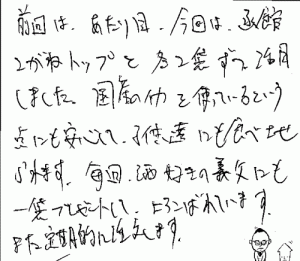 前回は、あたり目、今回は、函館
こがねトップを各2袋ずつ注文
しました。国産のイカを使っているという
点にも安心して、子供達にも食べさせ
られます。毎回、酒好きの義父にも
一袋プレゼントして、よろこばれています。
また定期的に注文します。